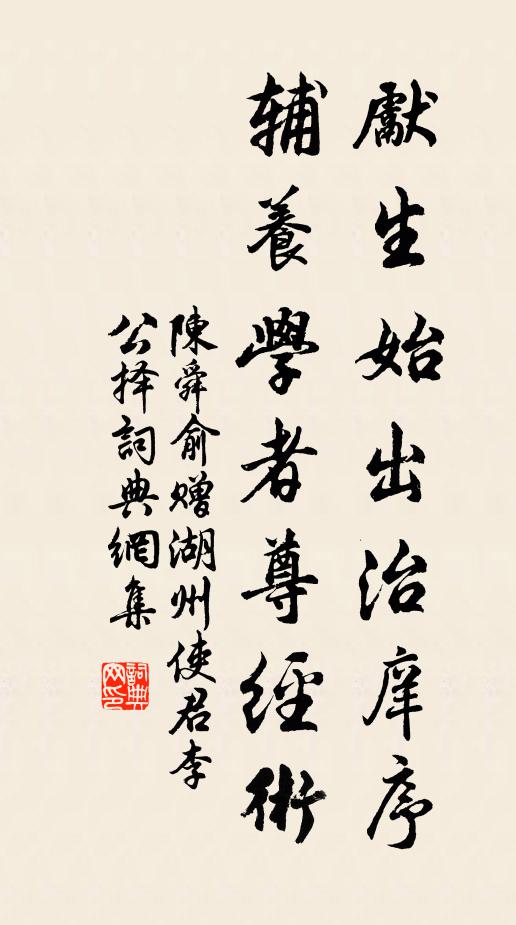 獻生始出治庠序
輔養學者尊經術
陳舜俞赠湖州使君李
公择詞典網集
詞典網印